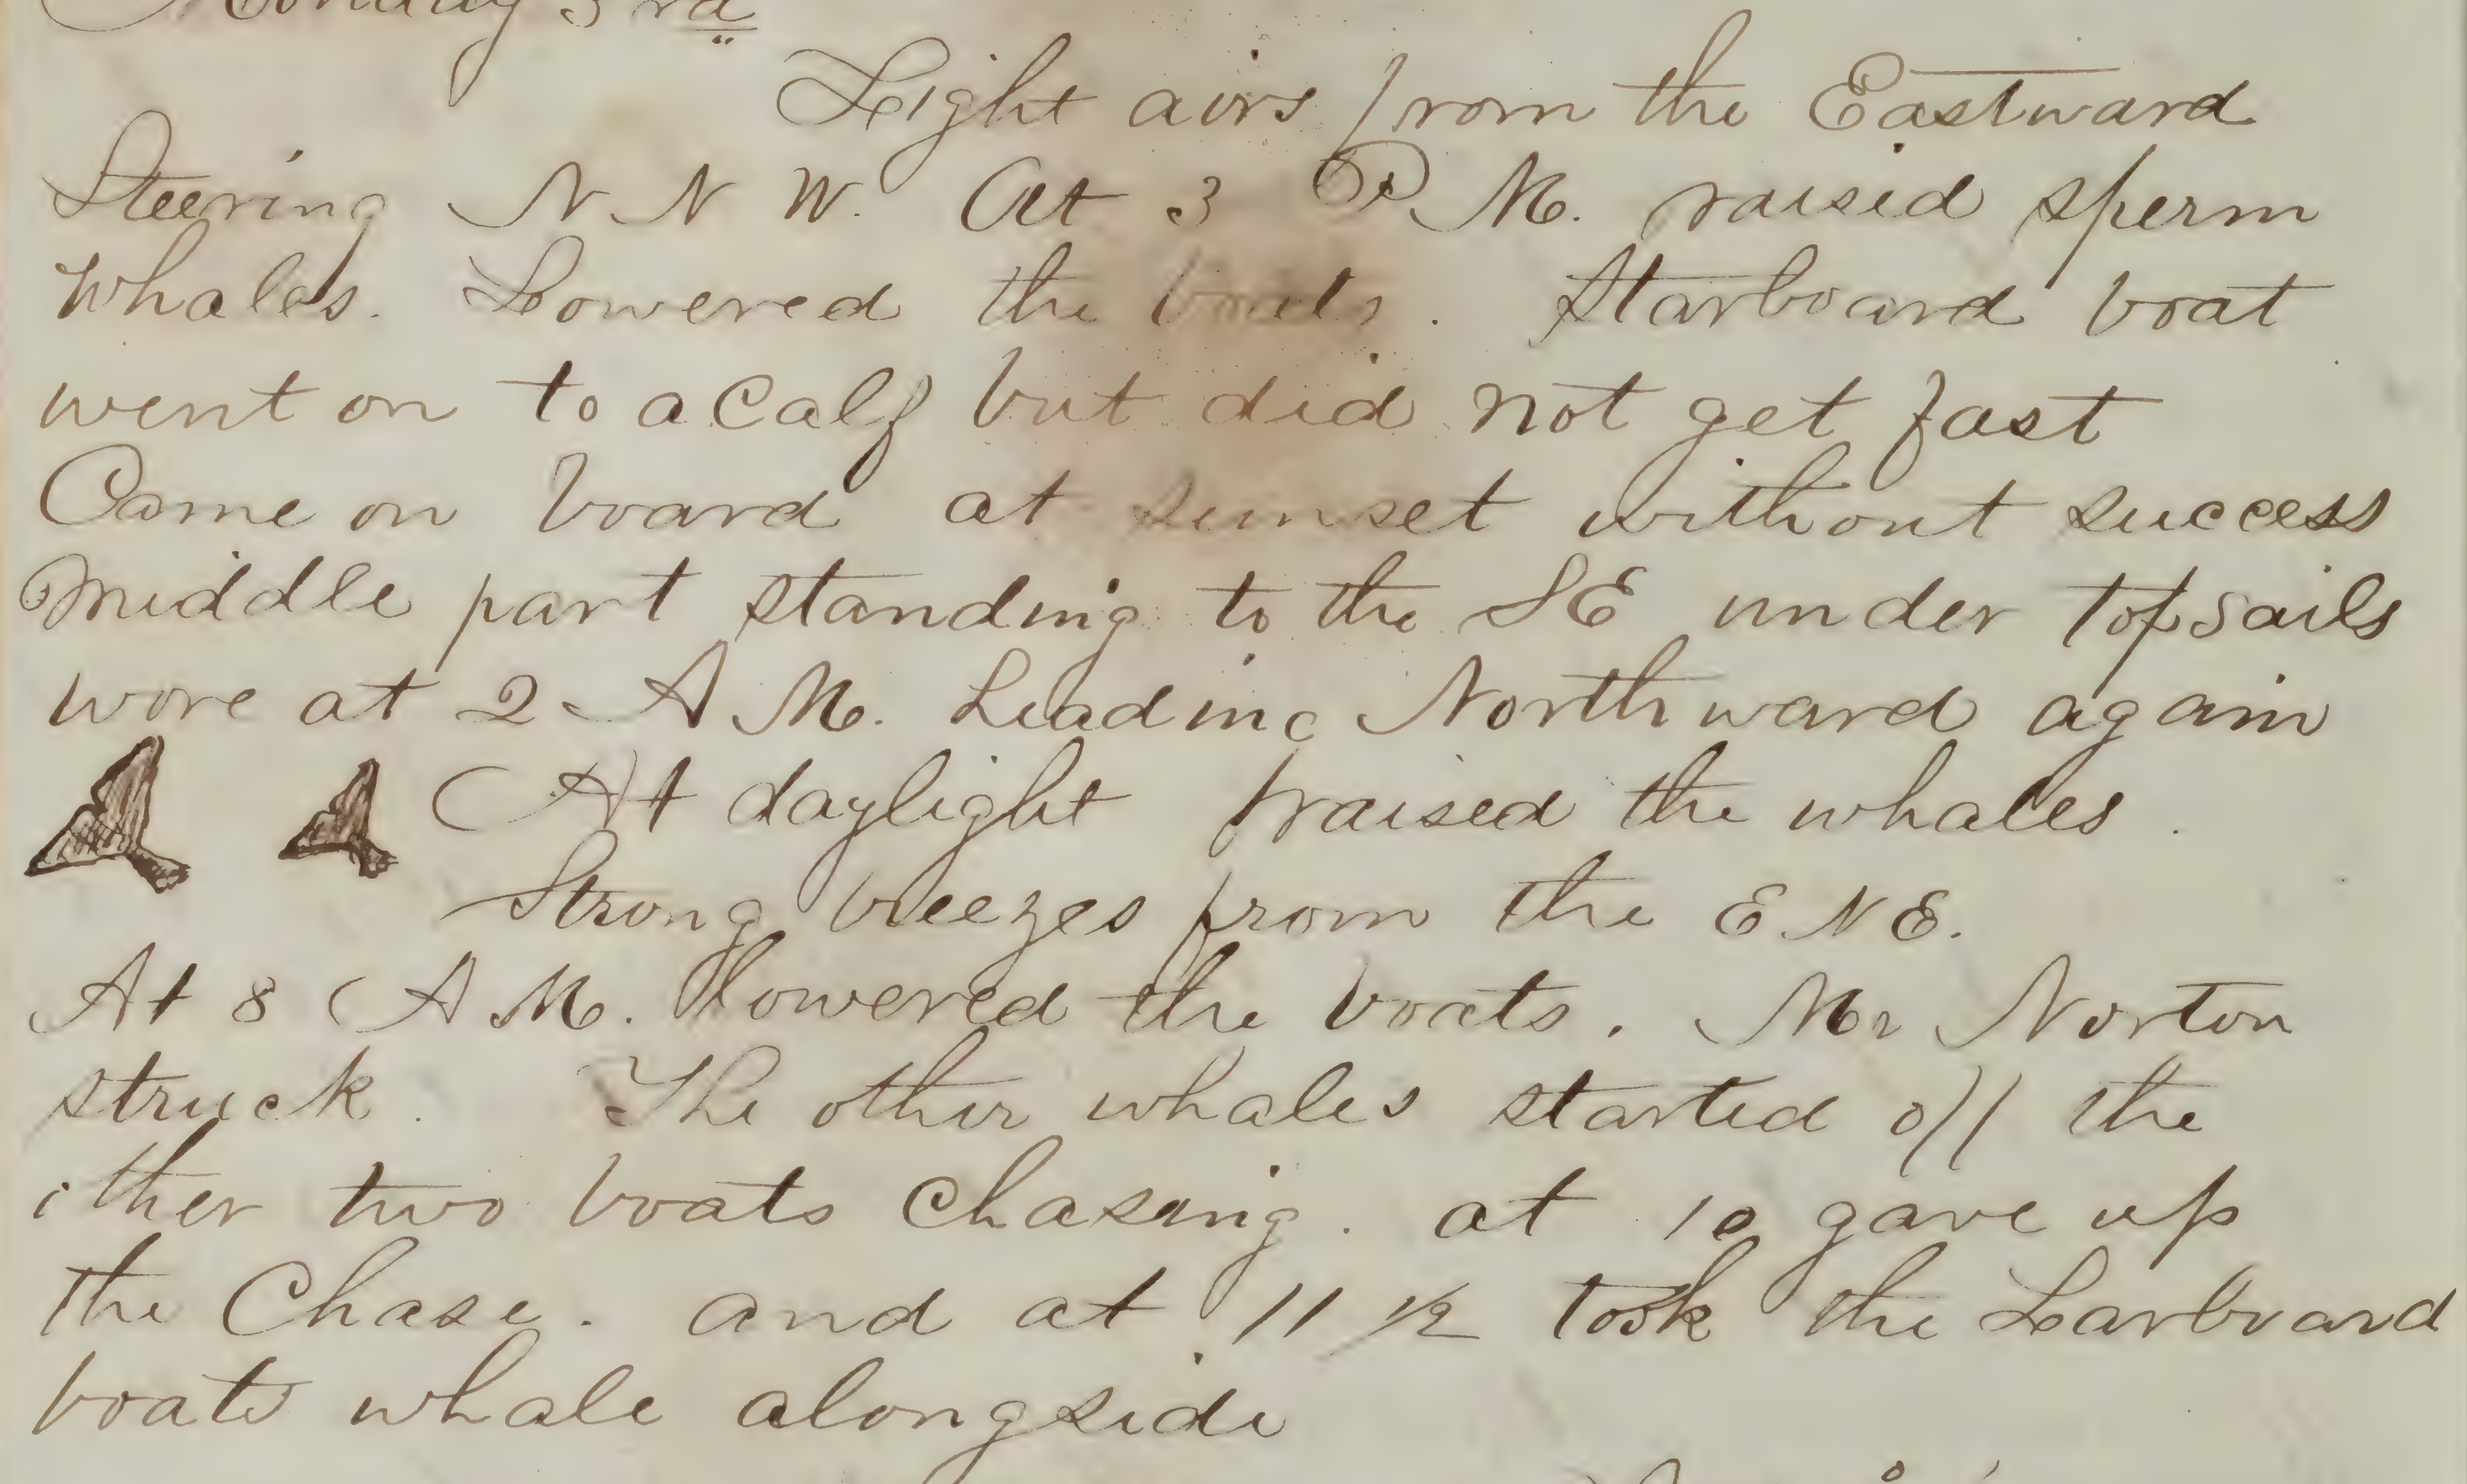 Monday 3rd
Light airs from the Eastward
Steering N N W. At 3 P. M. raised sperm
whales. Lowered the boats. Starboard boat
went on to a Calf but did not get fast
Came on board at sunset without success
Middle part standing to the SE under topsails
wore at 2 A M. Leading Northward again
At daylight raised the whales.
Strong breezes from the E N E.
At 8 A M. lowered the boats. Mr Norton
struck. The other whales started off the
other two boats chasing. at 10 gave up
the Chase. and at 11 1/2 took the Larboard
boats whale alongside